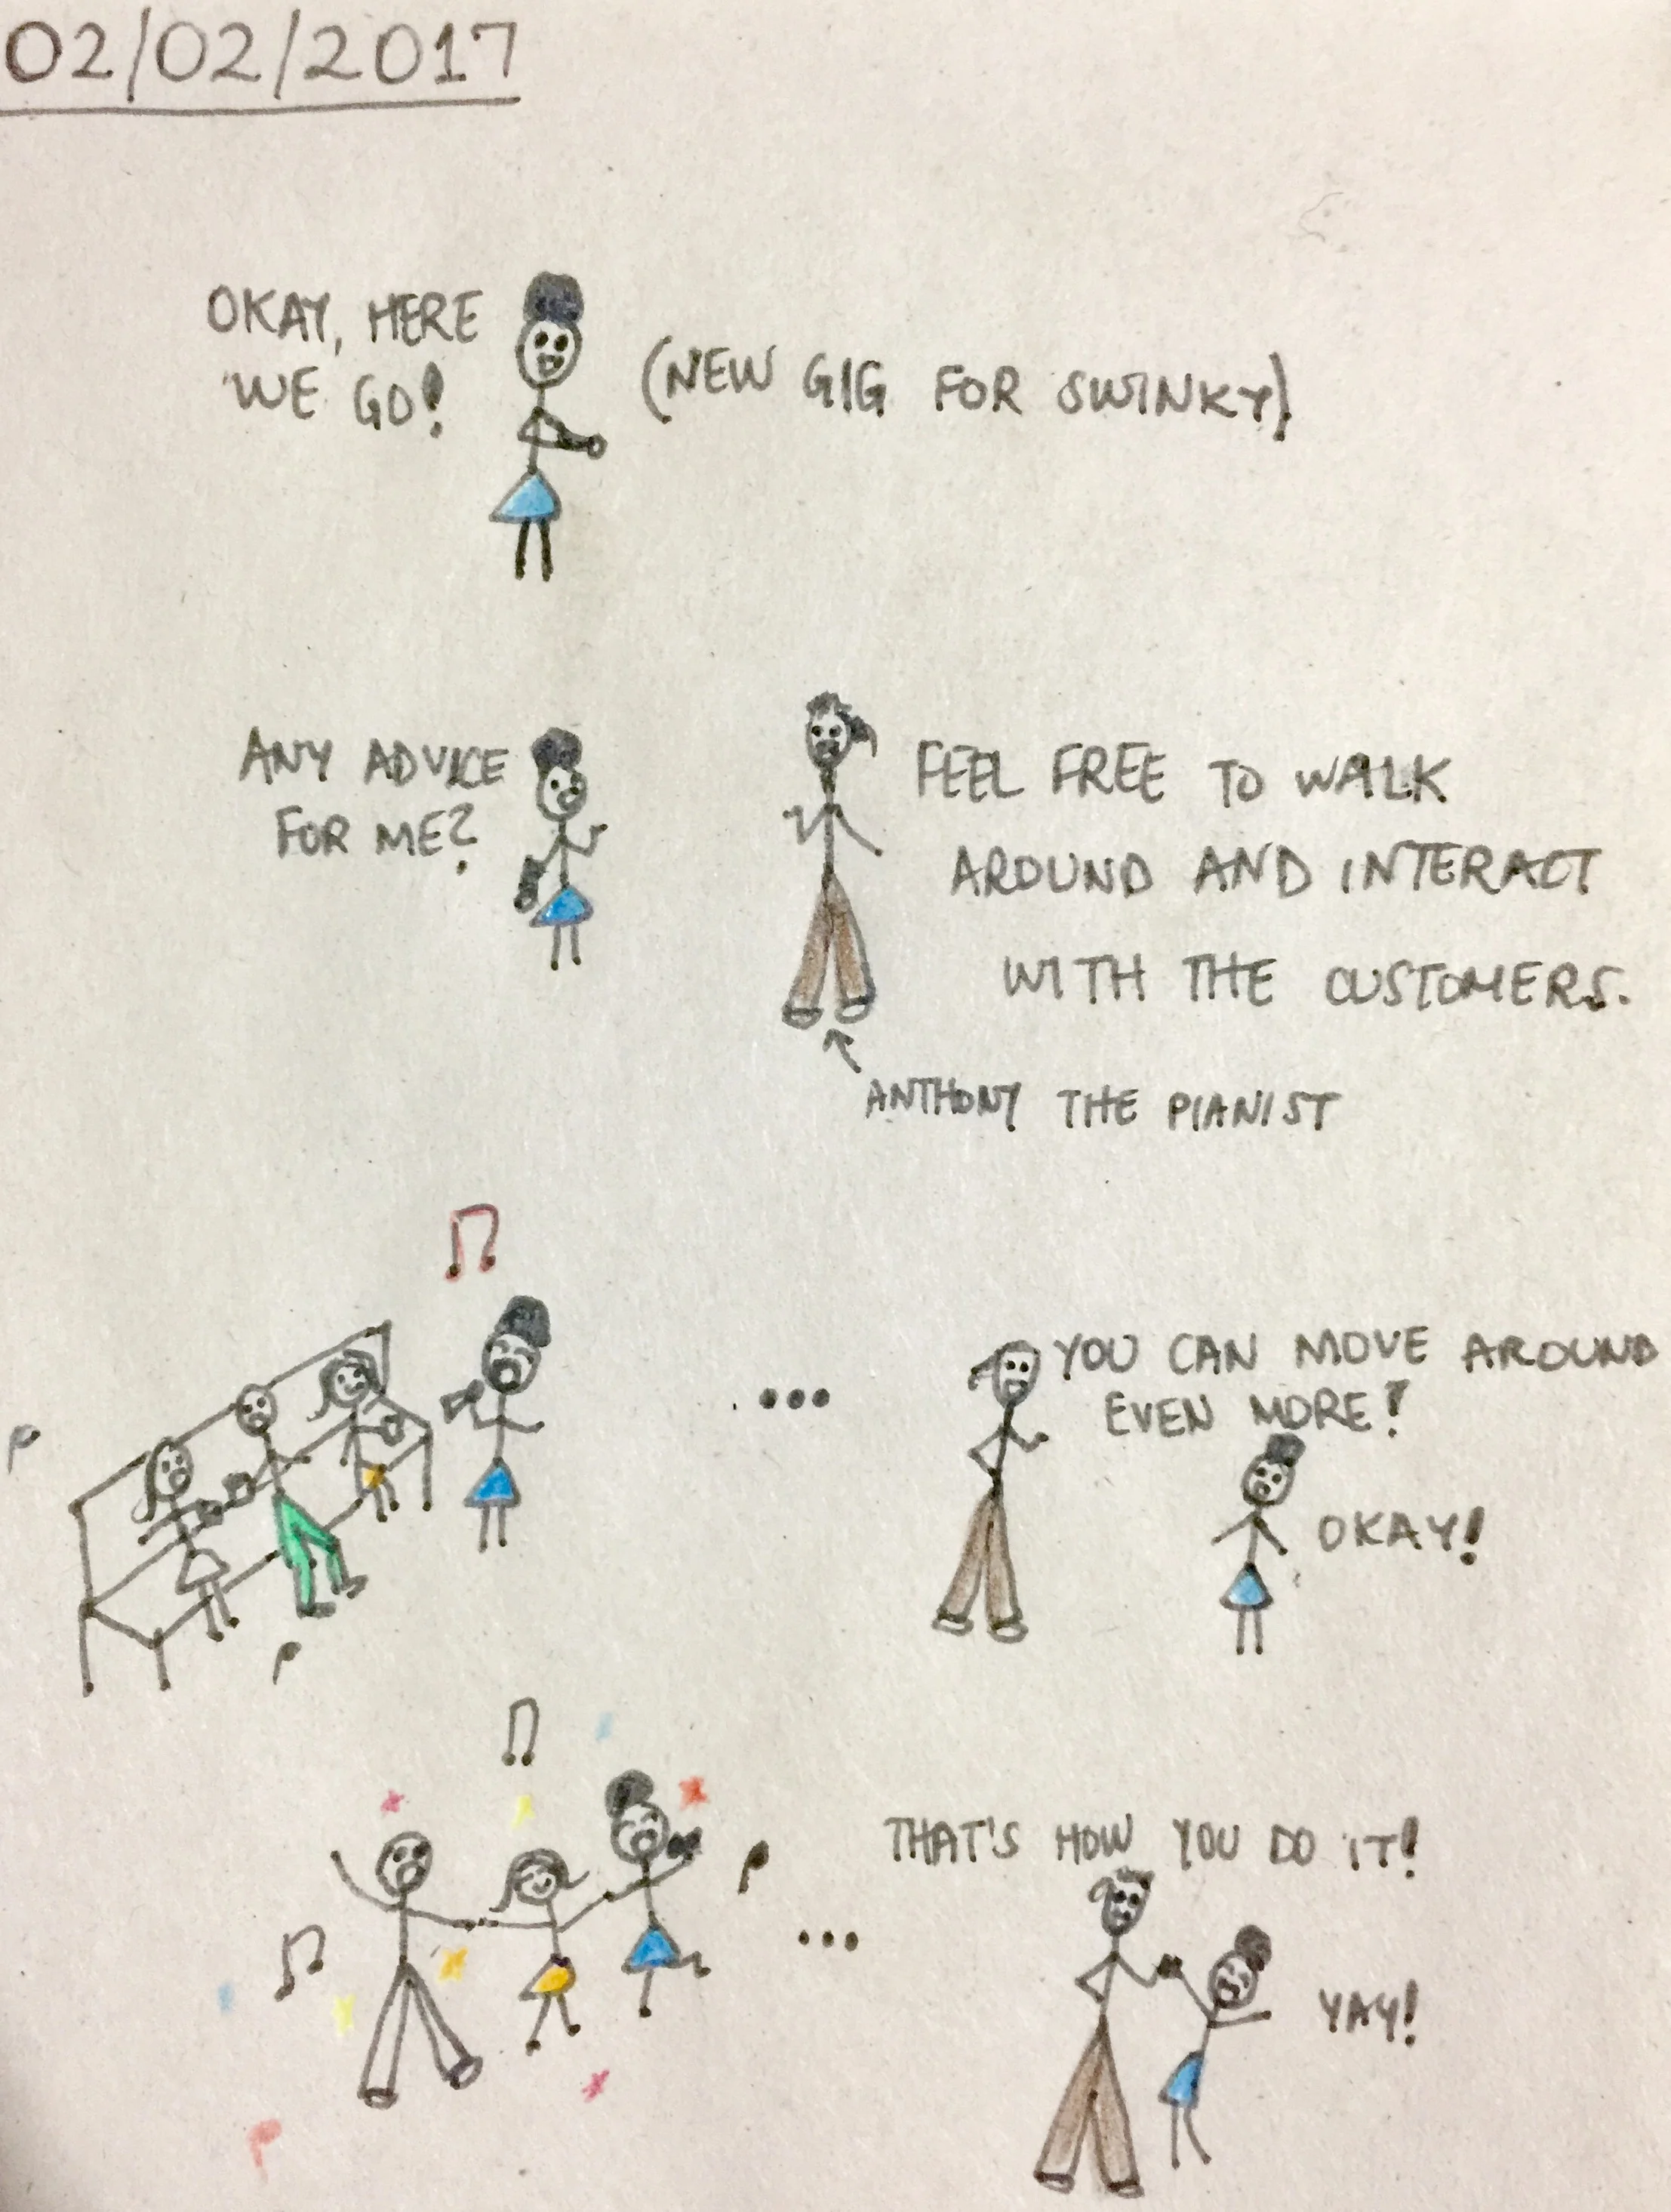 02/02/2017
OKAY, HERE
WE GO!
(NEW GIG FOR SWINKY)
ANY ADVICE
FOR ME?
FEEL FREE TO WALK
AROUND AND INTERACT
WITH THE CUSTOMERS.
ANTHONY THE PIANIST
...
YOU CAN MOVE AROUND
EVEN MORE!
OKAY!
...
THAT'S HOW YOU DO IT!
YAY!